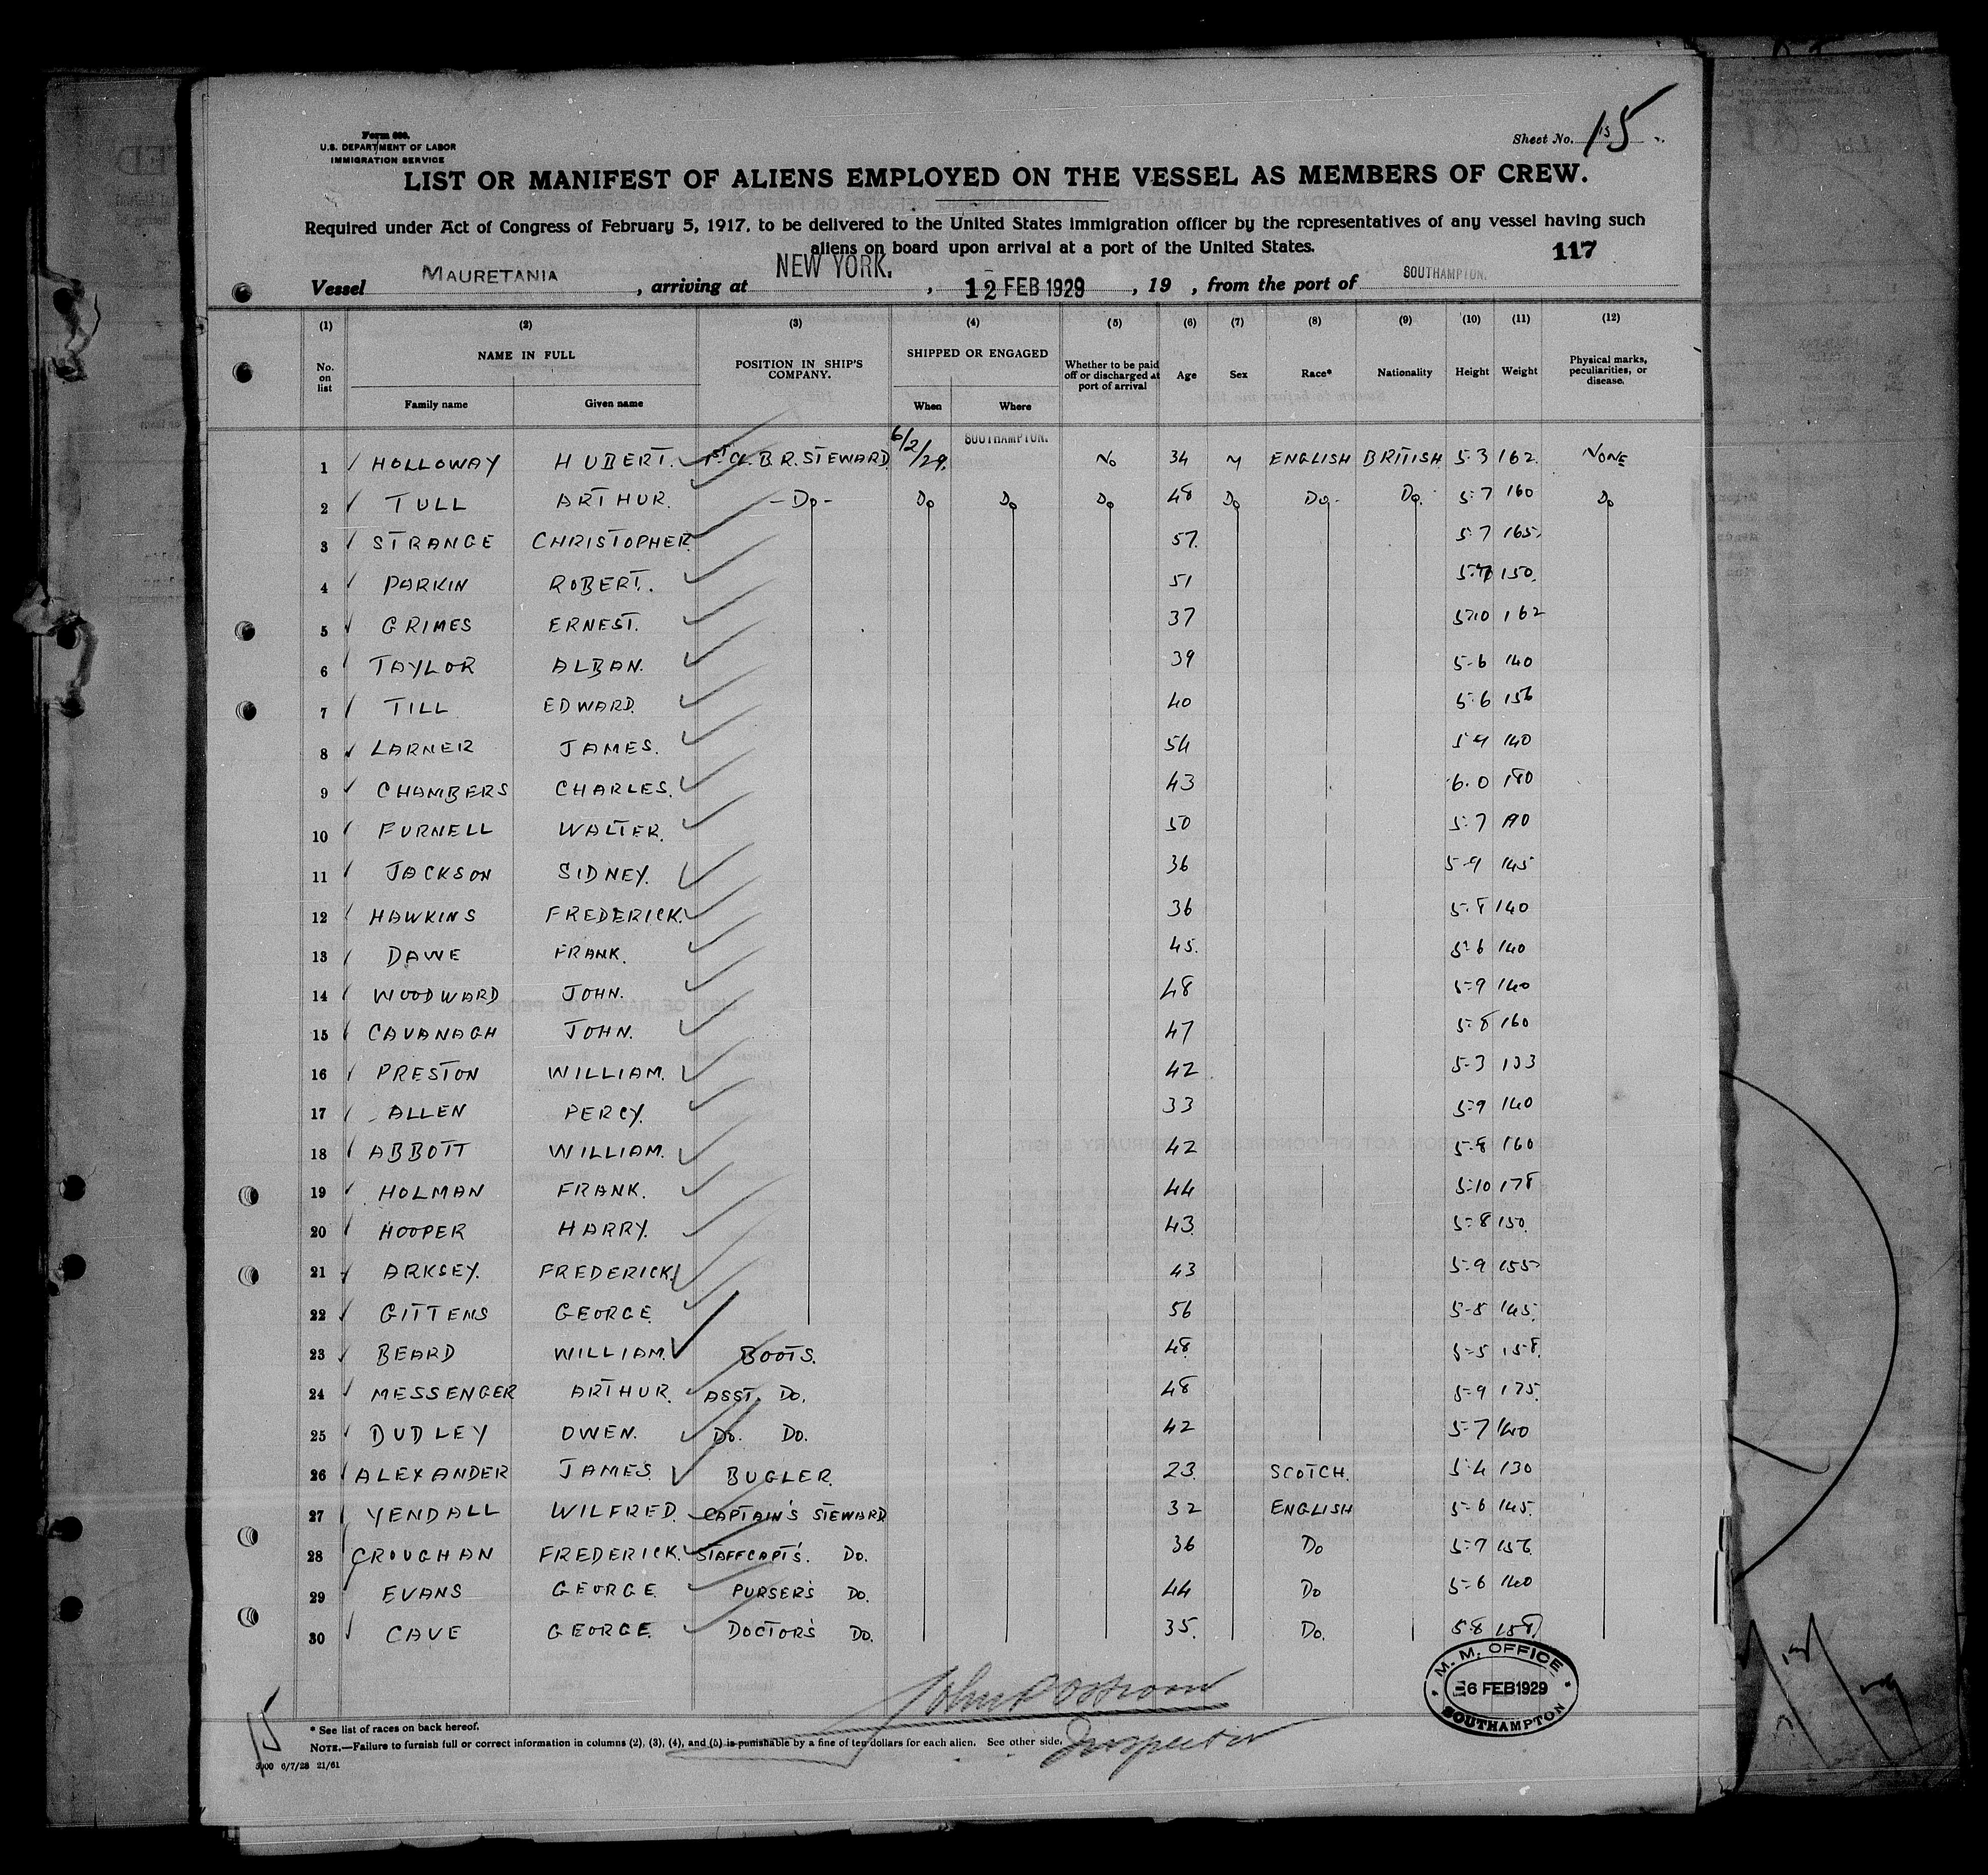 Sheet No. 15
Form 680.
U.S. DEPARTMENT OF LABOR
IMMIGRATION SERVICE
LIST OR MANIFEST OF ALIENS EMPLOYED ON THE VESSEL AS MEMBERS OF CREW.
Required under Act of Congress of February 5, 1917, to be delivered to the United States immigration officer by the representatives of any vessel having such
aliens on board upon arrival at a port of the United States.
117
Vessel MAURETANIA, arriving at NEW YORK., 12 FEB 1929, 19 , from the port of SOUTHAMPTON.
(1) (2) (3) (4) (5) (6) (7) (8) (9) (10) (11) (12)
No. on list NAME IN FULL Family name Given name POSITION IN SHIP'S COMPANY. SHIPPED OR ENGAGED When Where Whether to be paid off or discharged at port of arrival Age Sex Race* Nationality Height Weight Physical marks, peculiarities, or disease.
1 HOLLOWAY HUBERT. 1st CL. B.R. STEWARD 6/2/29. SOUTHAMPTON. No 34 M ENGLISH BRITISH 5-3 162. NONE
2 TULL ARTHUR. -Do- Do Do Do 48 Do Do- Do. 5-7 160 Do
3 STRANGE CHRISTOPHER. 57. 5-7 165
4 PARKIN ROBERT. 51 150.
5 GRIMES ERNEST. 37 5-10 162
6 TAYLOR ALBAN. 39 5-6 140
7 TILL EDWARD. 40 5-6 156
8 LARNER JAMES. 54 5-4 140
9 CHAMBERS CHARLES. 43 6.0 180
10 FURNELL WALTER. 50 5-7 190
11 JACKSON SIDNEY. 36 5-9 145
12 HAWKINS FREDERICK. 36 5-8 140
13 DAWE FRANK. 45. 5-6 140
14 WOODWARD JOHN. 48 5-9 140
15 CAVANAGH JOHN. 47 5-8 160
16 PRESTON WILLIAM. 42 5-3 133
17 ALLEN PERCY. 33 5-9 140
18 ABBOTT WILLIAM. 42 5-8 160
19 HOLMAN FRANK. 44 5-10 178
20 HOOPER HARRY. 43 5-8 150.
21 ARKSEY. FREDERICK. 43 5-9 155
22 GITTENS GEORGE. 56 5-8 145.
23 BEARD WILLIAM. BOOTS. 48 5-5 158.
24 MESSENGER ARTHUR. ASST. Do. 48 5-9 175.
25 DUDLEY OWEN. Do. Do. 42 5-7 140
26 ALEXANDER JAMES. BUGLER. 23. SCOTCH. 5-4 130
27 YENDALL WILFRED. CAPTAIN'S STEWARD 32 ENGLISH 5-6 145.
28 CROUGHAN FREDERICK. STAFFCAPT'S. Do. 36 Do 5-7 156.
29 EVANS GEORGE. PURSER'S Do. 44 Do 5-6 140
30 CAVE GEORGE. DOCTOR'S Do. 35. Do. 5-8 158
M. M. OFFICE
6 FEB 1929
SOUTHAMPTON
Inspector
15
* See list of races on back hereof.
NOTE.—Failure to furnish full or correct information in columns (2), (3), (4), and (5) is punishable by a fine of ten dollars for each alien. See other side.
6/7/28 21/61